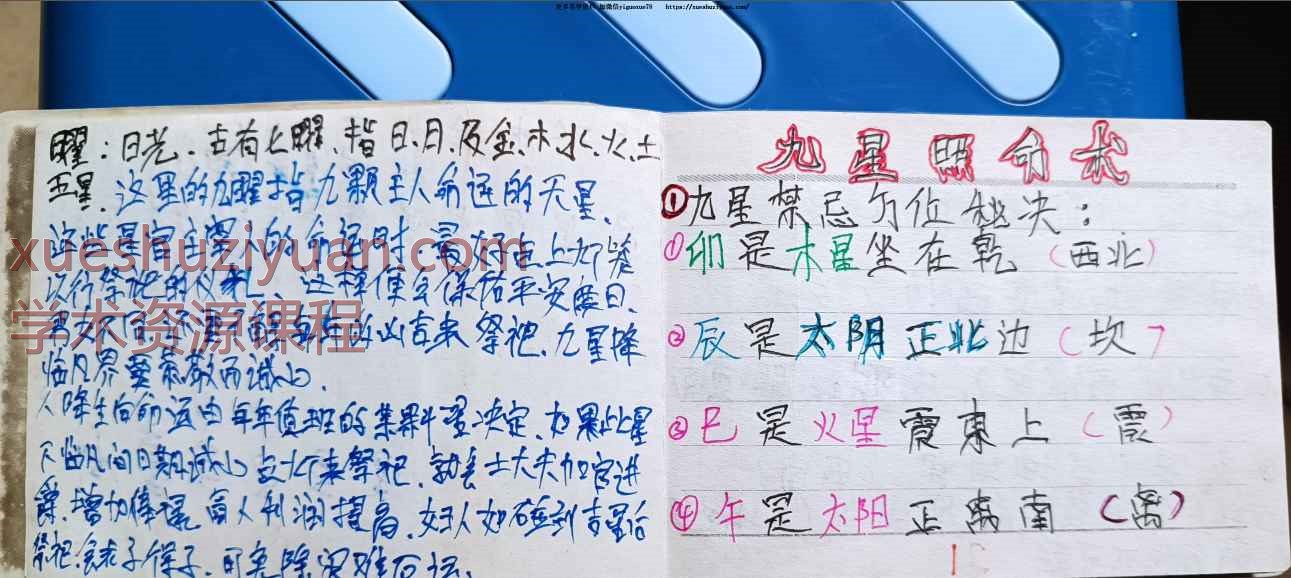 更多易学资料 加微信yiguoxue78 https://xueshuziyuan.com/
曜：日光、古有七曜、指日、月、及金、木、水、火、土
五星、这里的九曜指九颗主人命运的天星、
这些星宿主男人的命运时、最好点上灯
以行祭祀的仪礼、这样便会保佑平安度日、
男女不同 每年的凶吉来祭祀、九星降
临凡界要恭敬而诚心、
人降生向命运由每年值班的 星决定、如果此星
下临凡间日期诚心点灯来祭祀、就会士大夫加官进
爵、增加俸禄、商人利润提高、妇人如碰到吉星后
祭祀、会求子得子、可免除灾难厄运、
xueshuziyuan.com
学术资源课程
九星照命术
①九星禁忌方位秘决：
①卯是木星坐在乾（西北）
②辰是太阴正北边（坎）
③巳是火星震東上（震）
④午是太阳正离南（离）